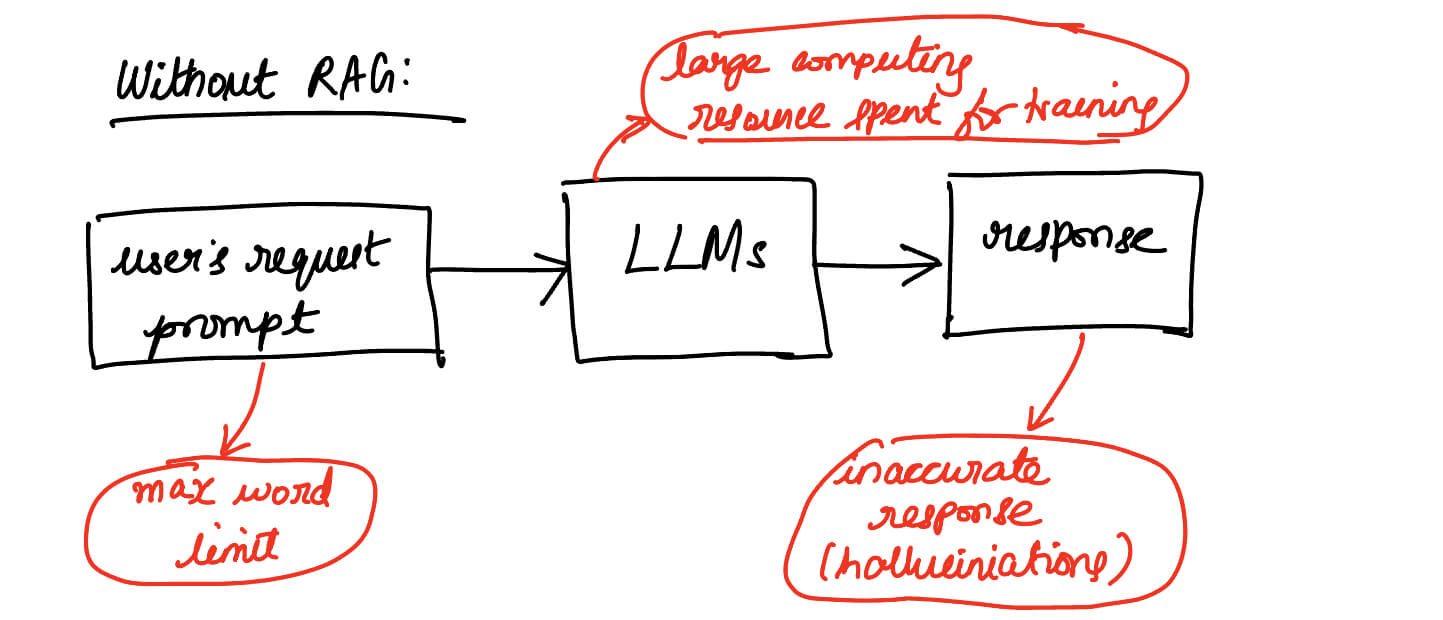 Without RAG:
large computing
resource spent for training
user's request
prompt
LLMs
response
max word
limit
inaccurate
response
(hallueiniations)